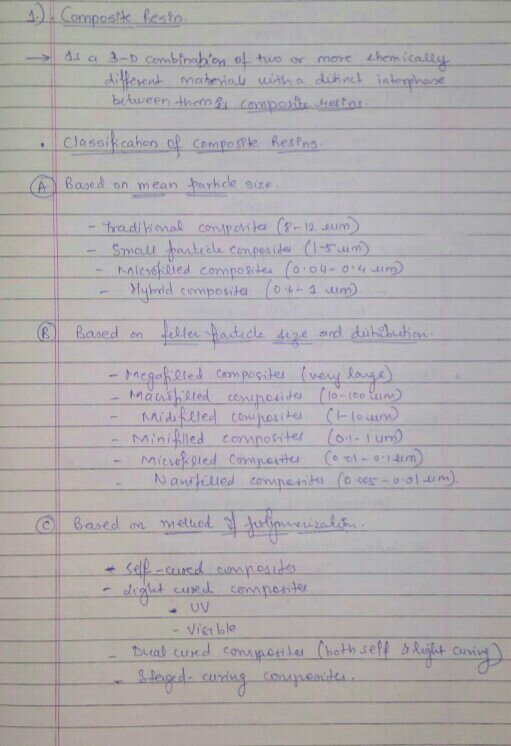 1.) Composite Resin.
→ Is a 3-D combination of two or more chemically
different materials with a distinct interphase
between them is composite resins.
• Classification of Composite Resins.
(A) Based on mean particle size.
- Traditional composites (8-12 um)
- Small particle composites (1-5 um)
- Microfilled composites (0.04-0.4 um)
- Hybrid composites (0.6-1 um)
(B) Based on filler particle size and distribution.
- Megafilled composites (very large)
- Macrofilled composites (10-100 um)
- Midifilled composites (1-10 um)
- Minifilled composites (0.1-1 um)
- Microfilled composites (0.01-0.1 um)
- Nanofilled composites (0.005-0.01 um).
(C) Based on method of polymerization.
- Self-cured composites
- Light cured composites
• UV
- Visible
- Dual cured composites (both self & light curing)
- Staged-curing composites.